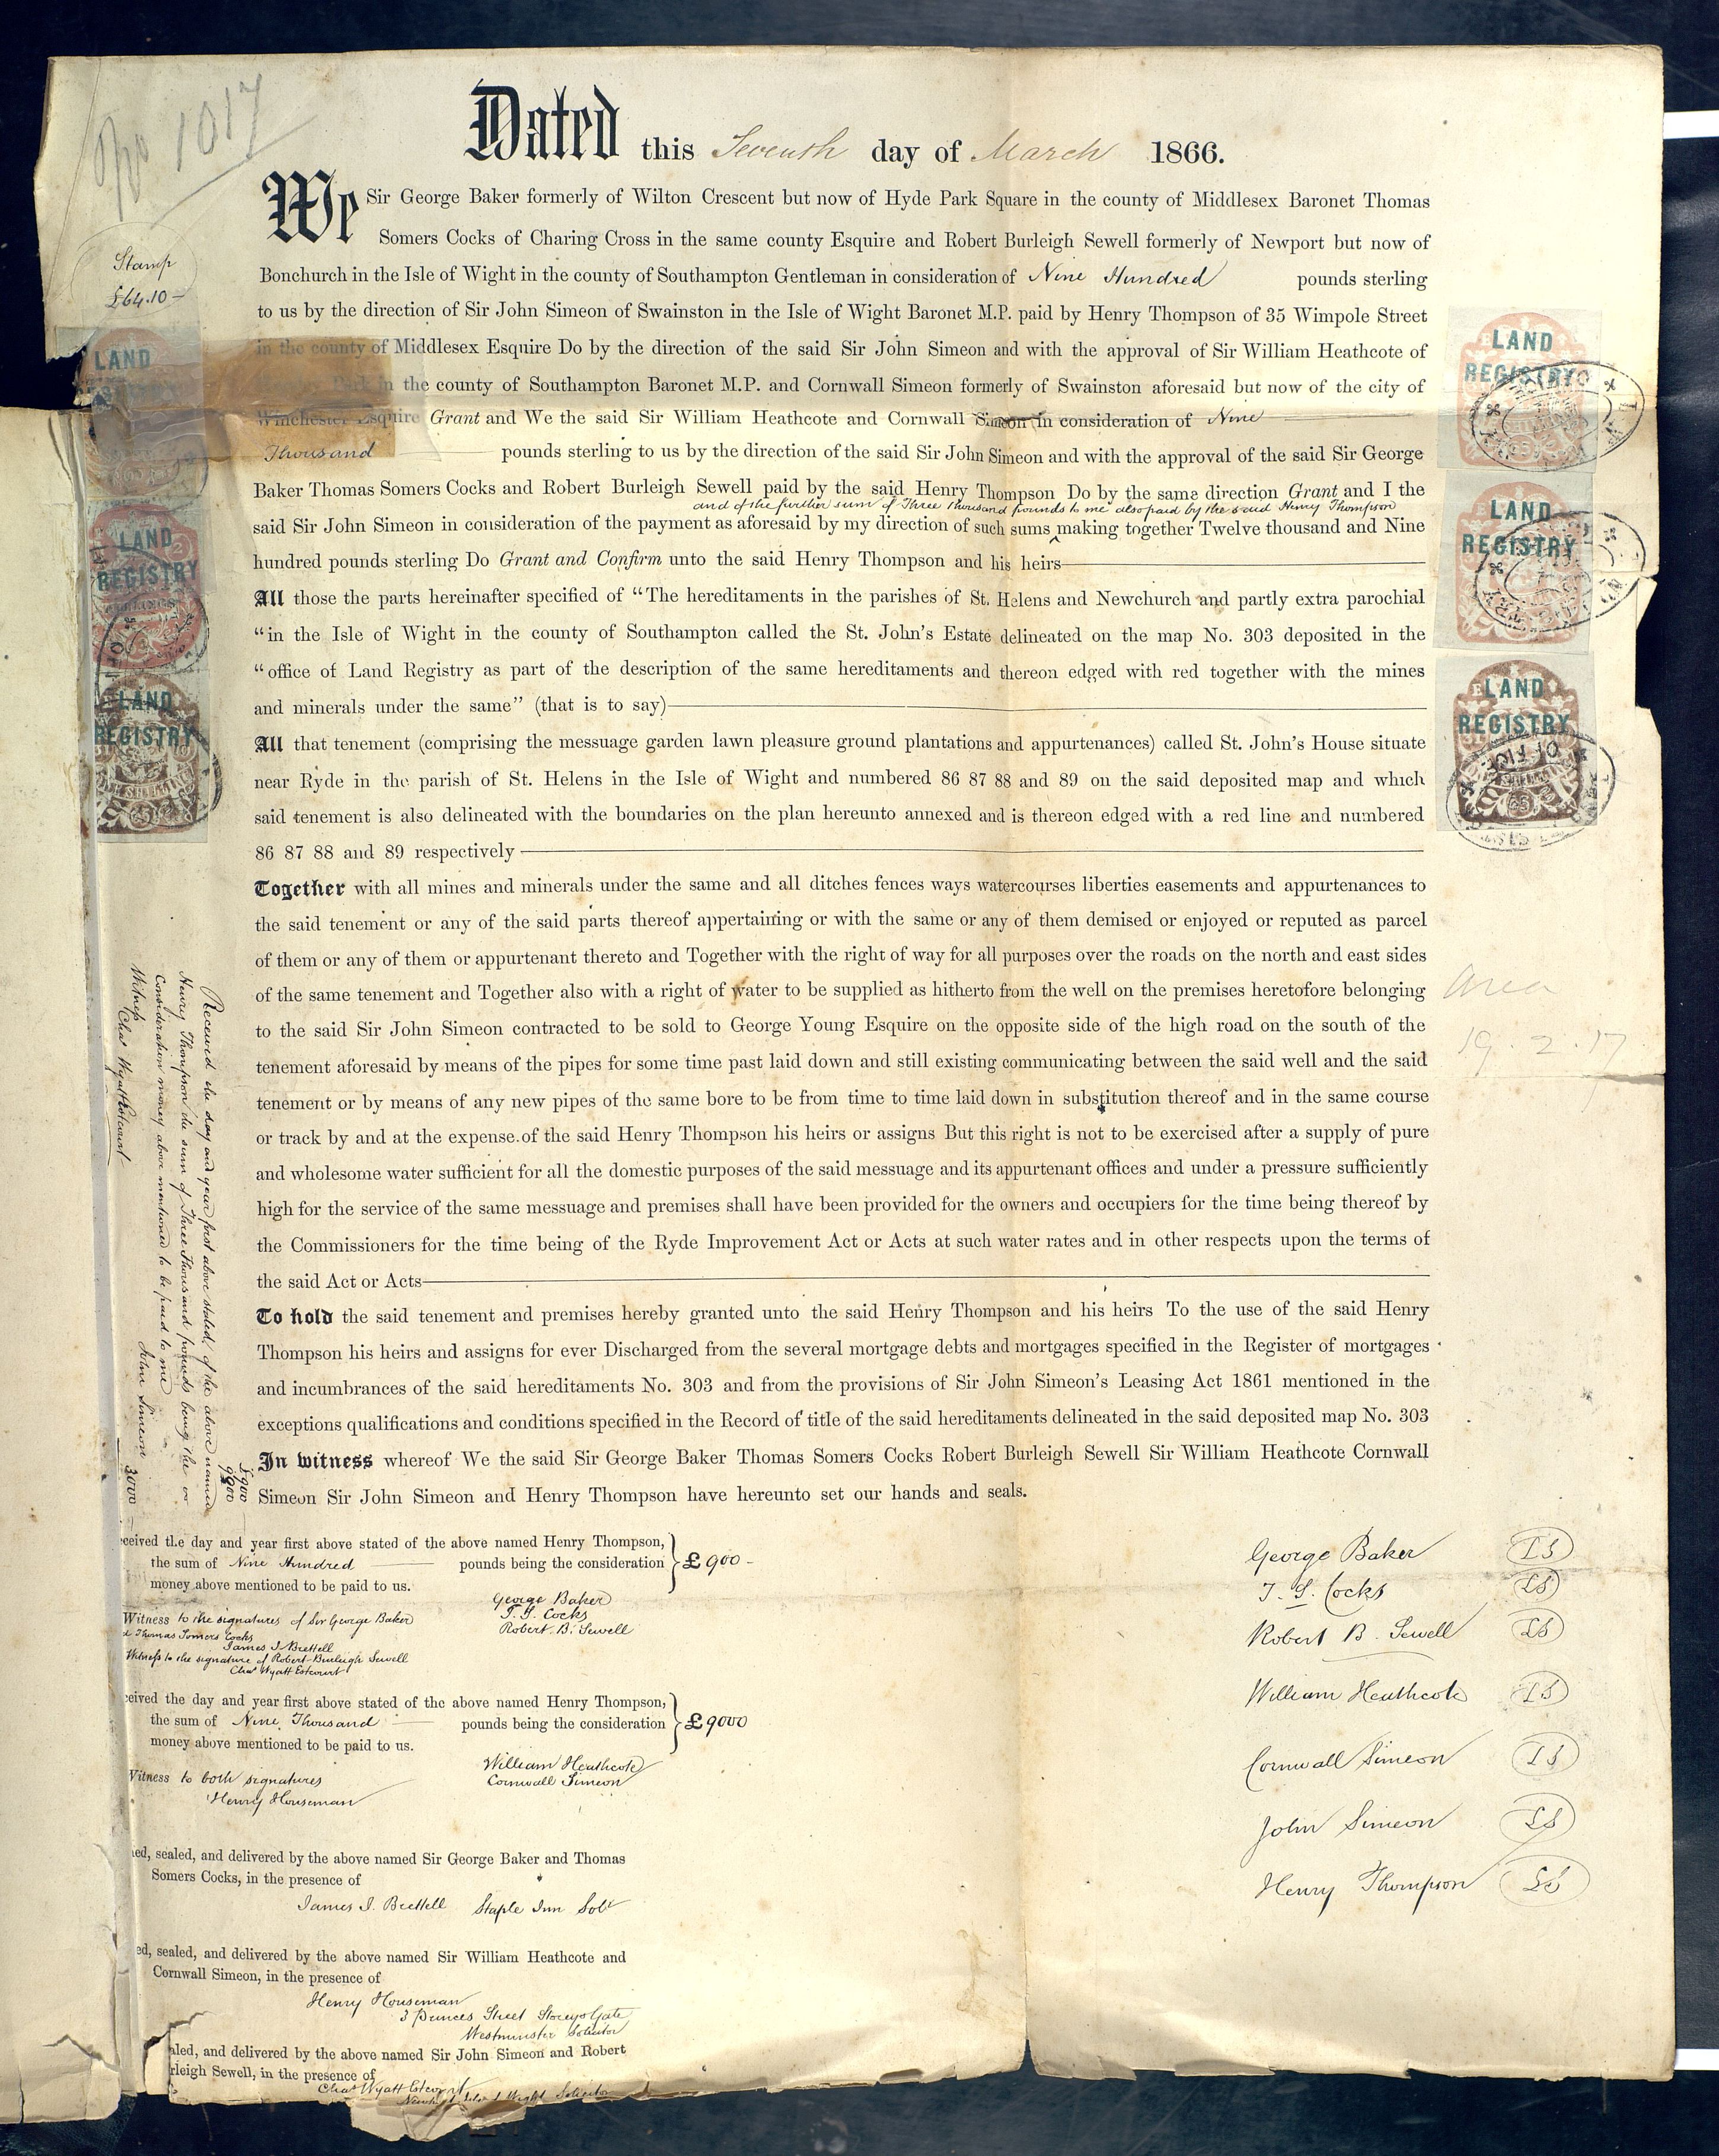 No 1017
Stamp
£64.10 -
Dated this Seventh day of March 1866.
We Sir George Baker formerly of Wilton Crescent but now of Hyde Park Square in the county of Middlesex Baronet Thomas
Somers Cocks of Charing Cross in the same county Esquire and Robert Burleigh Sewell formerly of Newport but now of
Bonchurch in the Isle of Wight in the county of Southampton Gentleman in consideration of Nine Hundred pounds sterling
to us by the direction of Sir John Simeon of Swainston in the Isle of Wight Baronet M.P. paid by Henry Thompson of 35 Wimpole Street
in the county of Middlesex Esquire Do by the direction of the said Sir John Simeon and with the approval of Sir William Heathcote of
Park in the county of Southampton Baronet M.P. and Cornwall Simeon formerly of Swainston aforesaid but now of the city of
Winchester Esquire Grant and We the said Sir William Heathcote and Cornwall Simeon in consideration of Nine
Thousand pounds sterling to us by the direction of the said Sir John Simeon and with the approval of the said Sir George
Baker Thomas Somers Cocks and Robert Burleigh Sewell paid by the said Henry Thompson Do by the same direction Grant and I the
and of the further sum of Three thousand pounds to me also paid by the said Henry Thompson
said Sir John Simeon in consideration of the payment as aforesaid by my direction of such sums ‸ making together Twelve thousand and Nine
hundred pounds sterling Do Grant and Confirm unto the said Henry Thompson and his heirs
All those the parts hereinafter specified of "The hereditaments in the parishes of St. Helens and Newchurch and partly extra parochial
"in the Isle of Wight in the county of Southampton called the St. John's Estate delineated on the map No. 303 deposited in the
"office of Land Registry as part of the description of the same hereditaments and thereon edged with red together with the mines
and minerals under the same" (that is to say)
All that tenement (comprising the message garden lawn pleasure ground plantations and appurtenances) called St. John's House situate
near Ryde in the parish of St. Helens in the Isle of Wight and numbered 86 87 88 and 89 on the said deposited map and which
said tenement is also delineated with the boundaries on the plan hereunto annexed and is thereon edged with a red line and numbered
86 87 88 and 89 respectively
Together with all mines and minerals under the same and all ditches fences ways watercourses liberties easements and appurtenances to
the said tenement or any of the said parts thereof appertaining or with the same or any of them demised or enjoyed or reputed as parcel
of them or any of them or appurtenant thereto and Together with the right of way for all purposes over the roads on the north and east sides
of the same tenement and Together also with a right of water to be supplied as hitherto from the well on the premises heretofore belonging
to the said Sir John Simeon contracted to be sold to George Young Esquire on the opposite side of the high road on the south of the
tenement aforesaid by means of the pipes for some time past laid down and still existing communicating between the said well and the said
tenement or by means of any new pipes of the same bore to be from time to time laid down in substitution thereof and in the same course
or track by and at the expense of the said Henry Thompson his heirs or assigns But this right is not to be exercised after a supply of pure
and wholesome water sufficient for all the domestic purposes of the said messuage and its appurtenant offices and under a pressure sufficiently
high for the service of the same messuage and premises shall have been provided for the owners and occupiers for the time being thereof by
the Commissioners for the time being of the Ryde Improvement Act or Acts at such water rates and in other respects upon the terms of
the said Act or Acts
To hold the said tenement and premises hereby granted unto the said Henry Thompson and his heirs To the use of the said Henry
Thompson his heirs and assigns for ever Discharged from the several mortgage debts and mortgages specified in the Register of mortgages
and incumbrances of the said hereditaments No. 303 and from the provisions of Sir John Simeon's Leasing Act 1861 mentioned in the
exceptions qualifications and conditions specified in the Record of title of the said hereditaments delineated in the said deposited map No. 303
In witness whereof We the said Sir George Baker Thomas Somers Cocks Robert Burleigh Sewell Sir William Heathcote Cornwall
Simeon Sir John Simeon and Henry Thompson have hereunto set our hands and seals.
LAND
LAND
REGISTRY
LAND
REGISTRY
LAND
REGISTRY
LAND
REGISTRY
LAND
REGISTRY
Area
19 . 2 . 17
£900
9000
Received the day and year first above stated of the above named
Henry Thompson the sum of Three thousand pounds being the
Consideration money above mentioned to be paid to me
John Simeon 3000
Witness
Chas Wyatt Estcourt
ceived the day and year first above stated of the above named Henry Thompson,
the sum of Nine Hundred pounds being the consideration £900 -
money above mentioned to be paid to us.
George Baker
T. S. Cocks
Robert. B. Sewell
Witness to the signatures of Sir George Baker
d Thomas Somers Cocks
James J. Brettell
Witness to the signature of Robert Burleigh Sewell
Chas Wyatt Estcourt
ceived the day and year first above stated of the above named Henry Thompson,
the sum of Nine Thousand pounds being the consideration £9000
money above mentioned to be paid to us.
William Heathcote
Cornwall Simeon
Witness to both signatures
Henry Houseman
ned, sealed, and delivered by the above named Sir George Baker and Thomas
Somers Cocks, in the presence of
James J. Brettell Staple Inn Solr
ed, sealed, and delivered by the above named Sir William Heathcote and
Cornwall Simeon, in the presence of
Henry Houseman
3 Princes Street Storeys Gate
Westminster Solicitor
aled, and delivered by the above named Sir John Simeon and Robert
rleigh Sewell, in the presence of
Chas Wyatt Estcourt
Newport Isle of Wight Solicitor
George Baker LS
T. S. Cocks LS
Robert B. Sewell LS
William Heathcote LS
Cornwall Simeon LS
John Simeon LS
Henry Thompson LS